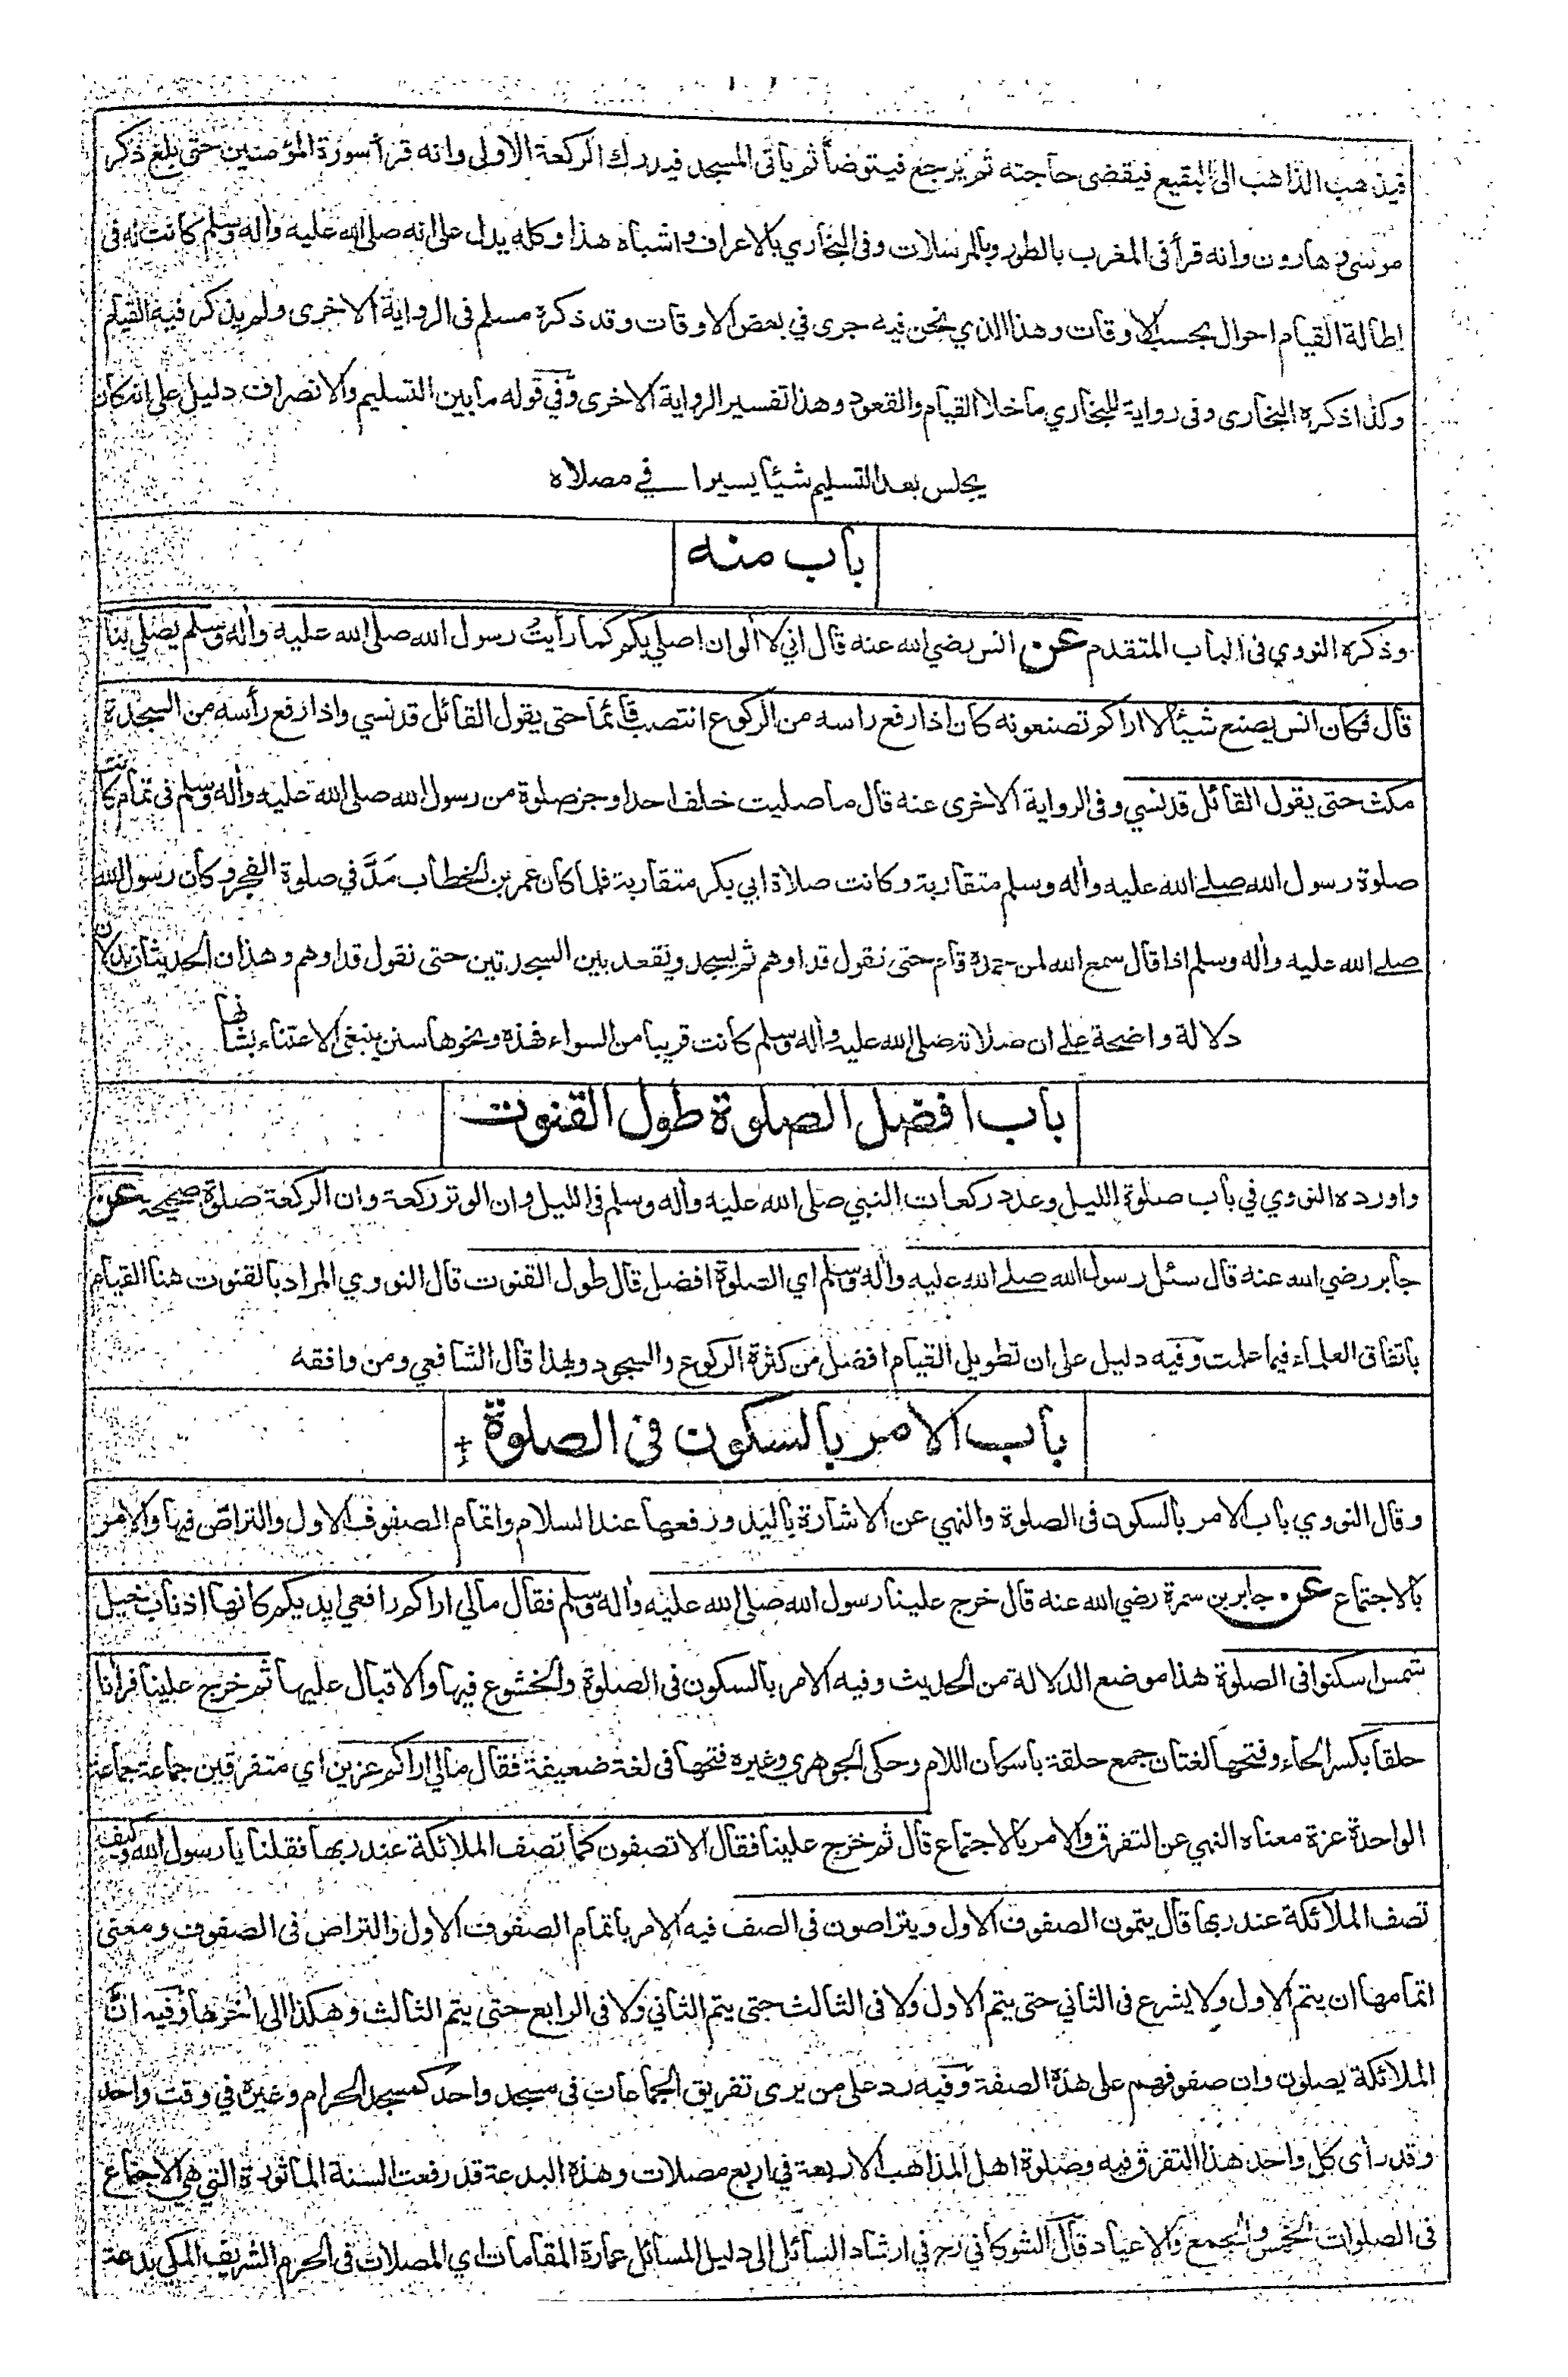 فيذهب الذاهب الى البقيع فيقضى حاجته ثم يرجع فيتوضأ ثم ياتى المسجد فيدرك الركعة الاولى وانه قرأ سورة المؤمنين حتى بلغ ذكر
موسى وهارون وانه قرأ فى المغرب بالطور وبالمرسلات وفى البخاري بالاعراف واشباه هذا وكله يدل على انه صلى الله عليه واله وسلم كانت له فى
اطالة القيام احوال بحسب الاوقات وهذا الذي نحن فيه جرى في بعض الاوقات وقد ذكره مسلم فى الرواية الاخرى ولم يذكر فيه القيام
وكذا ذكره البخارى وفى رواية للبخاري ماخلا القيام والقعود وهذا تفسير الرواية الاخرى وفي قوله مابين التسليم والانصراف دليل على انه كان
يجلس بعد التسليم شيئا يسيرا في مصلاه
باب منه
وذكره النووي فى الباب المتقدم عن انس رضي الله عنه قال اني لا ألوان اصلي بكم كما رأيت رسول الله صلى الله عليه واله وسلم يصلي بنا
قال فكان انس يصنع شيئا لا اراكم تصنعونه كان اذا رفع راسه من الركوع انتصب قائما حتى يقول القائل قد نسي واذا رفع رأسه من السجدة
مكث حتى يقول القائل قد نسي وفى الرواية الاخرى عنه قال ما صليت خلف احد اوجز صلوة من رسول الله صلى الله عليه واله وسلم فى تمام كانت
صلوة رسول الله صلى الله عليه واله وسلم متقاربة وكانت صلاة ابي بكر متقاربة فلما كان عمر بن الخطاب مَدَّ في صلوة الفجر وكان رسول الله
صلى الله عليه واله وسلم اذا قال سمع الله لمن حمده قام حتى نقول قد اوهم ثم يسجد ويقعد بين السجدتين حتى نقول قد اوهم وهذان الحديثان يدلان
دلالة واضحة على ان صلاته صلى الله عليه واله وسلم كانت قريبا من السواء فهذه ونحوها سنن ينبغي الاعتناء بشانها
باب افضل الصلوة طول القنوت
واورده النووي في باب صلوة الليل وعدد ركعات النبي صلى الله عليه واله وسلم فى الليل وان الوتر ركعة وان الركعة صلوة صحيحة عن
جابر رضي الله عنه قال سئل رسول الله صلى الله عليه واله وسلم اي الصلوة افضل قال طول القنوت قال النووي المراد بالقنوت هنا القيام
باتفاق العلماء فيما علمت وفيه دليل على ان تطويل القيام افضل من كثرة الركوع والسجود وبهذا قال الشافعي ومن وافقه
باب الامر بالسكون فى الصلوة
وقال النووي باب الامر بالسكون فى الصلوة والنهي عن الاشارة باليد ورفعها عند السلام واتمام الصفوف الاول والتراص فيها والامر
بالاجتماع عن جابر بن سمرة رضي الله عنه قال خرج علينا رسول الله صلى الله عليه واله وسلم فقال مالي اراكم رافعي ايديكم كانها اذناب خيل
شمس اسكنوا فى الصلوة هذا موضع الدلالة من الحديث وفيه الامر بالسكون فى الصلوة والخشوع فيها والاقبال عليها ثم خرج علينا فرأنا
حلقا بكسر الحاء وفتحها لغتان جمع حلقة باسكان اللام وحكى الجوهري وغيره فتحها فى لغة ضعيفة فقال مالي اراكم عزين اي متفرقين جماعة جماعة
الواحدة عزة معناه النهي عن التفرق والامر بالاجتماع قال ثم خرج علينا فقال الا تصفون كما تصف الملائكة عند ربها فقلنا يا رسول الله وكيف
تصف الملائكة عند ربها قال يتمون الصفوف الاول ويتراصون فى الصف فيه الامر باتمام الصفوف الاول والتراص فى الصفوف ومعنى
اتمامها ان يتم الاول ولا يشرع فى الثاني حتى يتم الاول ولا فى الثالث حتى يتم الثاني ولا فى الرابع حتى يتم الثالث وهكذا الى اخرها وفيه انَّ
الملائكة يصلون وان صفوفهم على هذه الصفة وفيه رد على من يرى تفريق الجماعات فى مسجد واحد كمسجد الحرام وغيره في وقت واحد
وقد رأى كل واحد هذا التفرق فيه وصلوة اهل المذاهب الاربعة في اربع مصلات وهذه البدعة قد رفعت السنة الماثورة التي هي الاجتماع
فى الصلوات الخمس والجمع والاعياد قال الشوكاني رح في ارشاد السائل الى دليل المسائل عمارة المقامات اي المصلات فى الحرم الشريف المكي بدعة